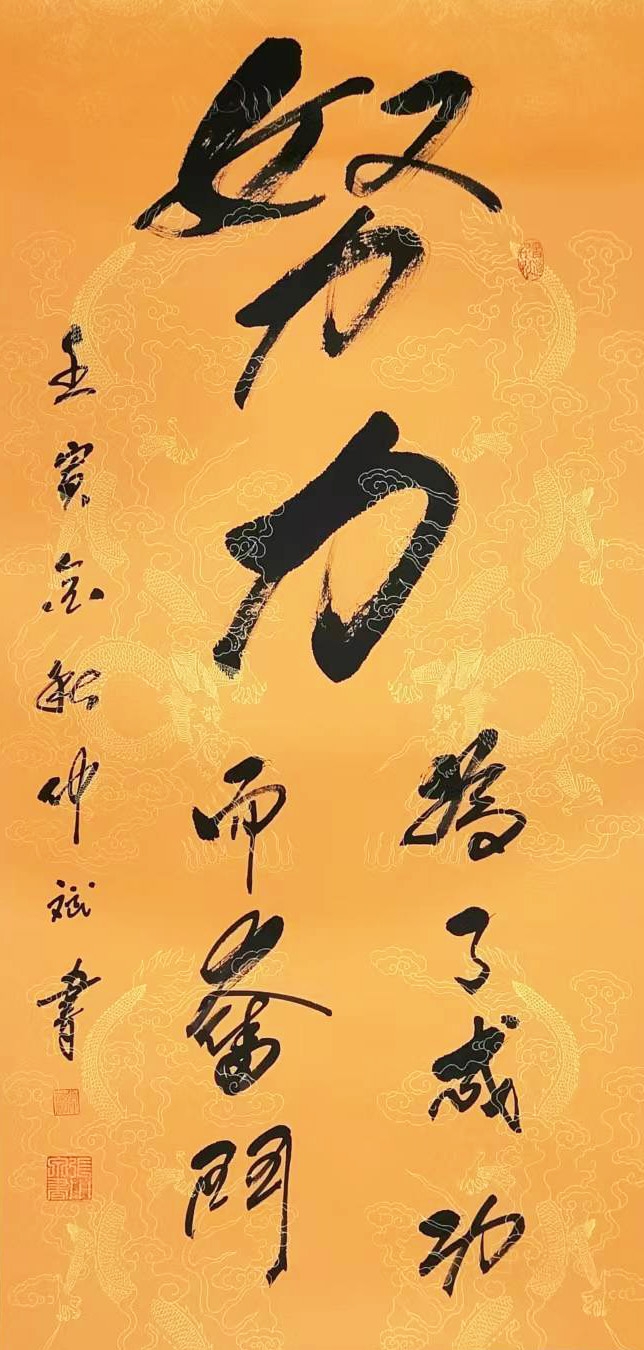 努力
為了成功
而奮鬥
壬寅金秋仲斌書